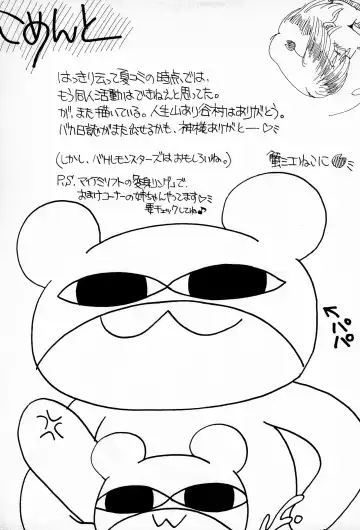 こめんと
はっきり云って夏コミの時点では、
もう同人活動はできねえと思ってた。
が、また描いている。人生山あり谷村はありがとう。
バカ日記がまた出せるかも、神様ありがとー♡ミ
(しかし、バトルモンスターズはおもしろいね。)
P.S. マイアミソフトの
おまけコーナーの姉ちゃんやってます♡ミ
要チェックしてね♪